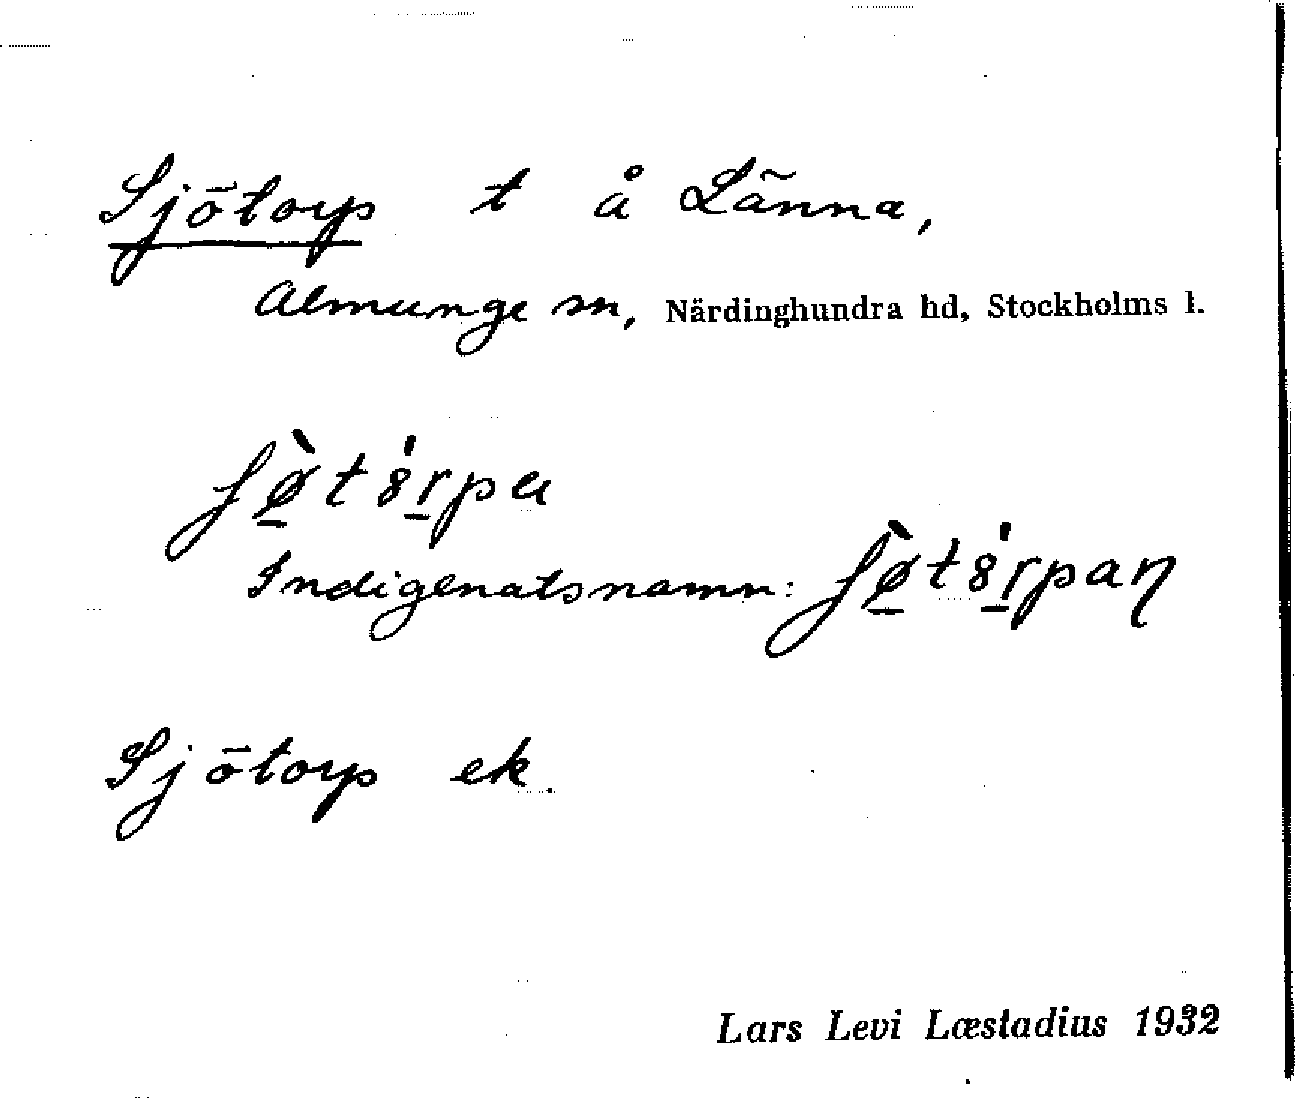 Sjötorp t å Länna,
Almunge sn, Närdinghundra hd, Stockholms l.
ʃø̠̀tɞ́r̠pa
Indigenatsnamn: ʃø̠̀tɞ́r̠paη
Sjötorp ek.
Lars Levi Læstadius 1932